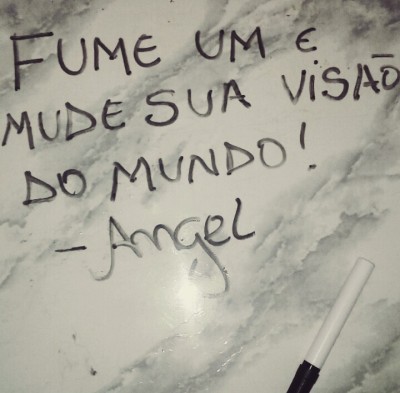 FUME UM E
MUDE SUA VISÃO
DO MUNDO!
- Angel